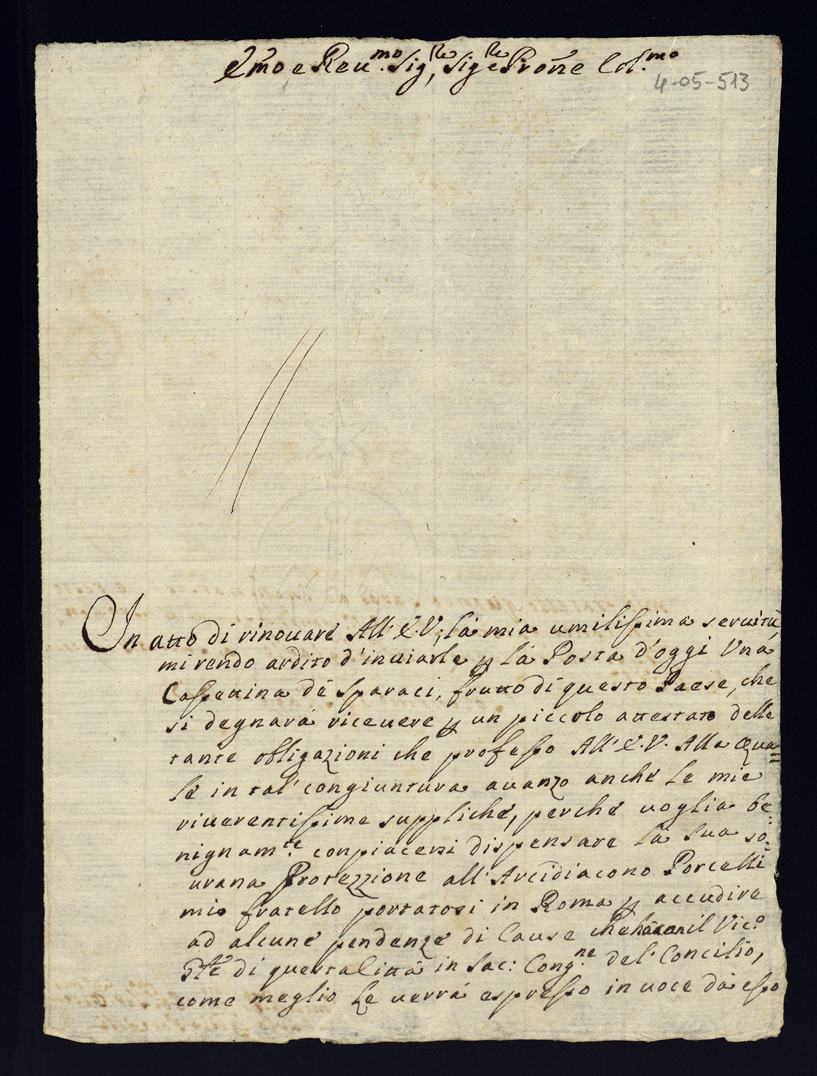 Emo e Reu.mo Sig.re, Sig.re e Prone Col.mo
4-05-513
In atto di rinouare All'E.V. la mia umilissima seruitù,
mi rendo ardito d'inuiarle p la Posta d'oggi Una
Cassettina dè Sparaci, frutto di questo Paese, che
si degnarà riceuere p un piccolo attestato delle
tante obligazioni che professo All'E.V. Alla Qua=
le in tal' congiuntura auanzo anche le mie
riuerentissime suppliche, perche uoglia be=
nignam.te conpiacersi dispensare la sua so=
urana Protezzione all'Arcidiacono Porcelli
mio fratello portatosi in Roma p accudire
ad alcune pendenze di Cause che il Vic.o
di questa Città in Sac: Cong.ne del Concilio,
come meglio le uerrà espresso in uoce dà esso